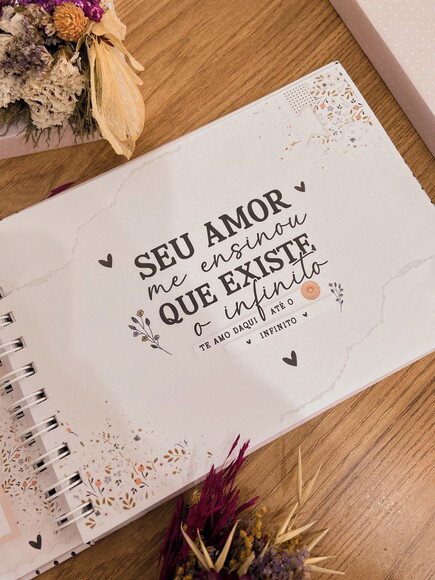 SEU AMOR
me ensinou
QUE EXISTE
o infinito
TE AMO DAQUI ATÉ O
INFINITO